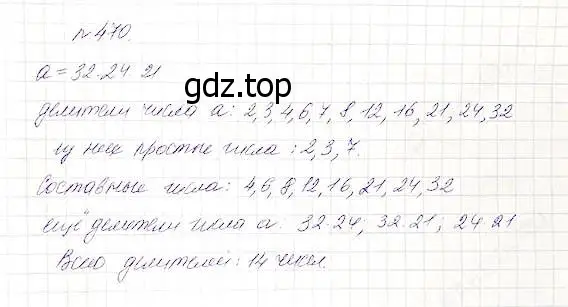 № 470.
a = 32·24·21
gdz.top
делители числа a: 2,3,4,6,7,8,12,16,21,24,32
из них простые числа: 2,3,7.
Составные числа: 4,6,8,12,16,21,24,32
ещё делители числа a: 32·24; 32·21; 24·21
Всего делителей: 14 чисел.